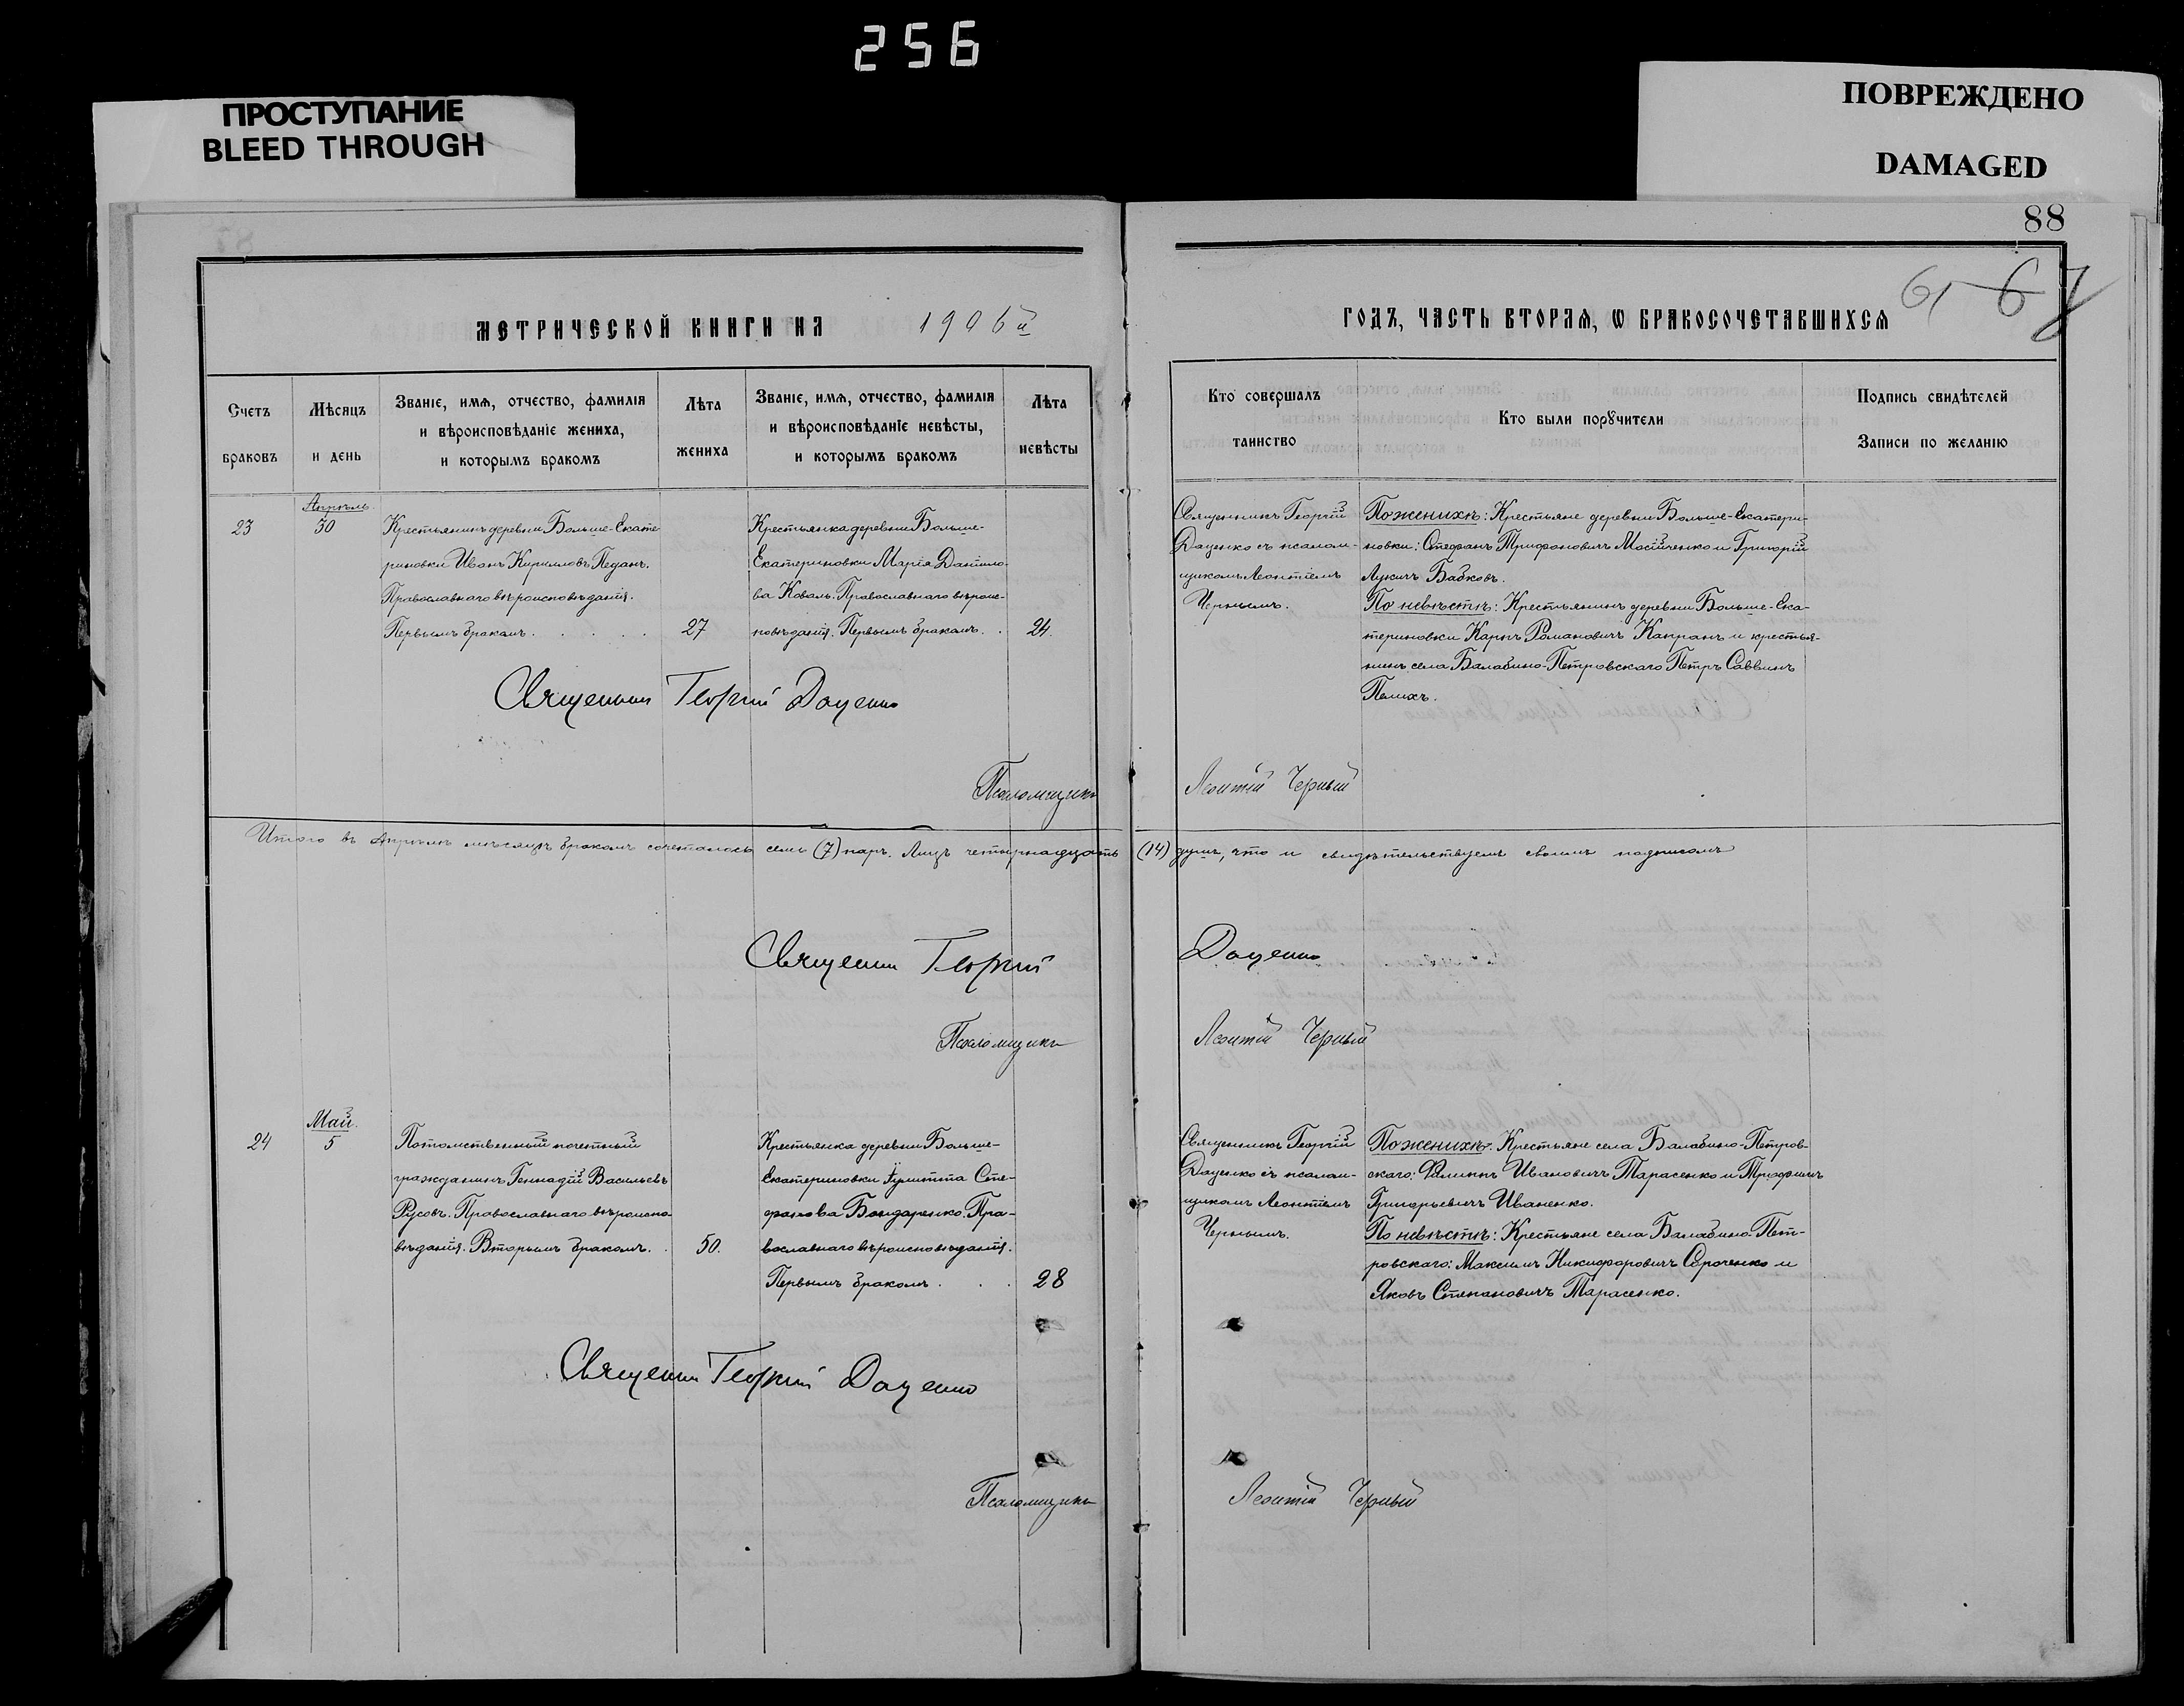 256
ПРОСТУПАНИЕ
BLEED THROUGH
ПОВРЕЖДЕНО
DAMAGED
88
МЕТРИЧЕСКОЙ КНИГИ НА 1906й
ГОДЪ, ЧАСТЬ ВТОРАЯ, Ѡ БРАКОСОЧЕТАВШИХСЯ
67
Счетъ
браковъ
Мѣсяцъ
и день
Званіе, имѧ, отчество, фамилія
и вѣроисповѣданіе жениха,
и которымъ бракомъ
Лѣта
жениха
Званіе, имѧ, отчество, фамилія
и вѣроисповѣданіе невѣсты,
и которымъ бракомъ
Лѣта
невѣсты
Кто совершалъ
таинство
Кто были порꙋчители
Подпись свидѣтелей
Записи по желанію
23
Апрѣль
30
Крестьянинъ деревни Больше-Екате
риновки Иванъ Кирилловъ Педанъ.
Православнаго вѣроисповѣданія.
Первымъ бракомъ.
27
Крестьянка деревни Больше-
Екатериновки Марія Данило-
ва Коваль. Православнаго вѣроис-
повѣданія. Первымъ бракомъ.
24.
Священникъ Георгій
Даценко съ псалом-
щикомъ Леонтіемъ
Чернымъ.
По женихѣ: Крестьяне деревни Больше-Екатери-
новки: Стефанъ Трифоновичъ Мосійченко и Григорій
Лукичъ Бабковъ.
По невѣстѣ: Крестьянинъ деревни Больше-Ека-
териновки Карпъ Романовичъ Капранъ и крестья-
нинъ села Балабино-Петровскаго Петръ Саввинъ
Пелихъ.
Священникъ Георгій Даценко
Псаломщикъ Леонтій Черный
Итого въ Апрѣлѣ мѣсяцѣ бракомъ сочеталось семь (7) паръ. Лицъ четырнадцать (14) душъ, что и свидѣтельствуемъ своимъ подписомъ
Священникъ Георгій Даценко
Псаломщикъ Леонтій Черный
24
Май.
5
Потомственный почетный
гражданинъ Геннадій Васильевъ
Русовъ. Православнаго вѣроиспо-
вѣданія. Вторымъ бракомъ.
50.
Крестьянка деревни Больше-
Екатериновки Іулитта Сте-
фанова Бондаренко. Пра-
вославнаго вѣроисповѣданія.
Первымъ бракомъ.
28
Священникъ Георгій
Даценко съ псалом-
щикомъ Леонтіемъ
Чернымъ.
По женихѣ: Крестьяне села Балабино-Петров-
скаго: Филиппъ Ивановичъ Тарасенко и Трифонъ
Григорьевичъ Иваненко.
По невѣстѣ: Крестьяне села Балабино-Пет-
ровскаго: Максимъ Никифоровичъ Сороченко и
Яковъ Степановичъ Тарасенко.
Священникъ Георгій Даценко
Псаломщикъ Леонтій Черный